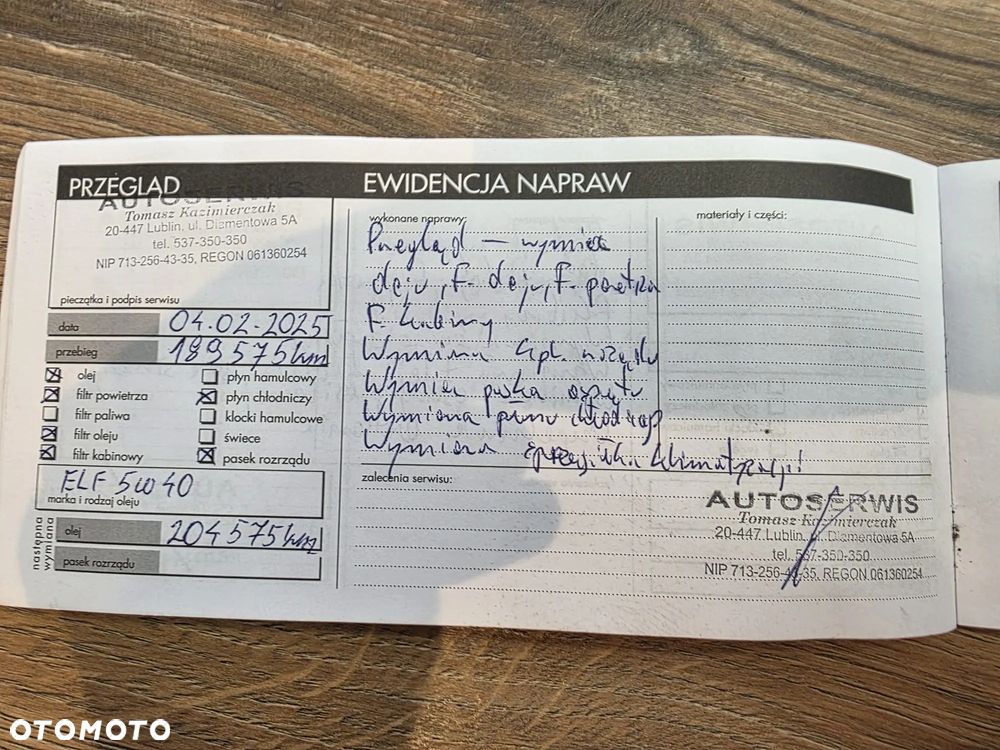 PRZEGLĄD
AUTOSERWIS
Tomasz Kazimierczak
20-447 Lublin, ul. Diamentowa 5A
tel. 537-350-350
NIP 713-256-43-35, REGON 061360254
pieczątka i podpis serwisu
data 04.02-2025r
przebieg 189575km
olej
płyn hamulcowy
filtr powietrza
płyn chłodniczy
filtr paliwa
klocki hamulcowe
filtr oleju
świece
filtr kabinowy
pasek rozrządu
ELF 5w40
marka i rodzaj oleju
następna wymiana
olej 204575km
pasek rozrządu
EWIDENCJA NAPRAW
wykonane naprawy:
Przegląd – wymiana
oleju, F-oleju, F-powietrza
F kabiny
Wymiana kpl. rozrządu
Wymiana paska osprzętu
Wymiana płynu
Wymiana klimatyzacji!
zalecenia serwisu:
materiały i części:
AUTOSERWIS
Tomasz Kazimierczak
20-447 Lublin, ul. Diamentowa 5A
tel. 537-350-350
NIP 713-256-43-35, REGON 061360254
OTOMOTO